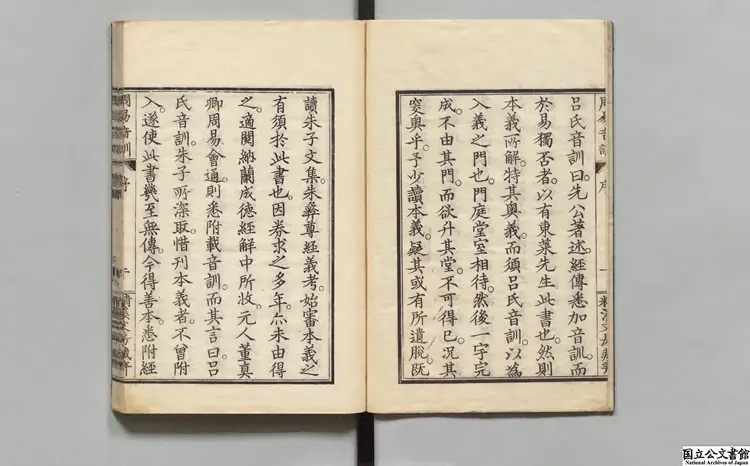 周易音訓
序
一
呂氏音訓曰先公著述經傳悉加音訓而
於易獨否者以有東萊先生此書也然則
本義所解特其奧義而須呂氏音訓以為
入義之門也門庭堂室相待然後一宇完
成不由其門而欲升其堂不可得已況其
窔奧乎予少讀本義疑其或有所遺脫既
讀朱子文集朱彝尊經義考始審本義之
有須於此書也因券求之多年尒未由得
之適閱納蘭成德經解中所收元人董真
卿周易會通則悉附載音訓而其言曰呂
氏音訓朱子所深取惜刊本義者不曾附
入遂使此書幾至無傳今得善本悉附經
周易音訓
序
國立公文書館
National Archives of Japan